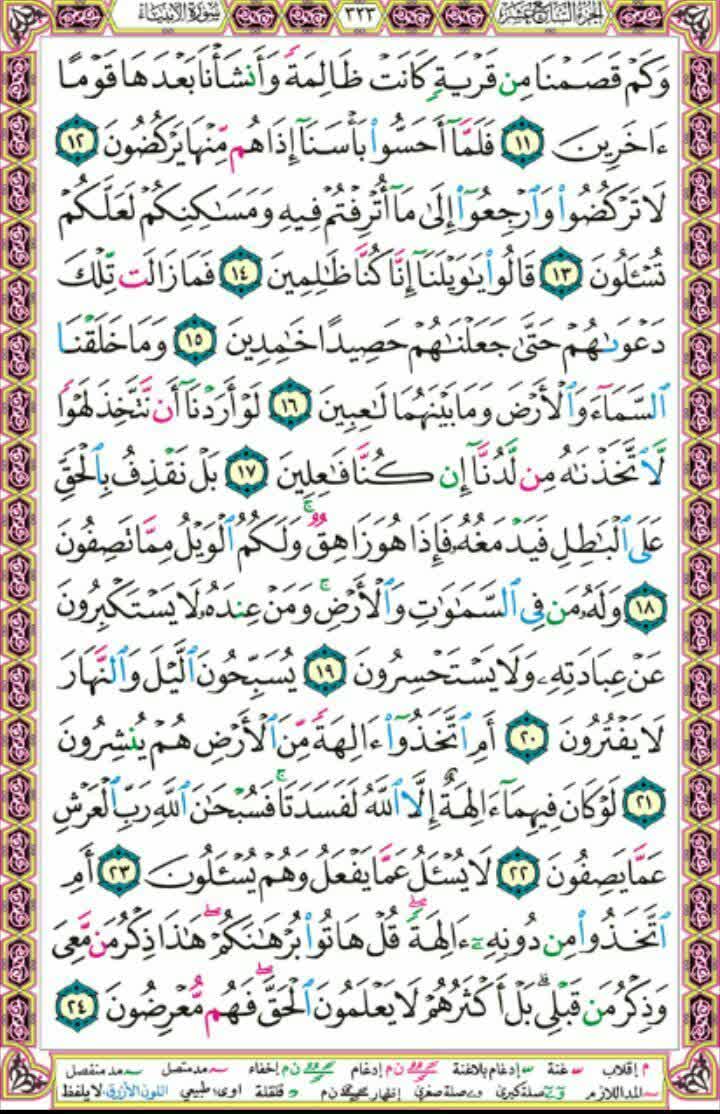 الجزء السابع عشر ٣٢٣ سورة الأنبياء
وَكَمْ قَصَمْنَا مِن قَرْيَةٍ كَانَتْ ظَالِمَةً وَأَنشَأْنَا بَعْدَهَا قَوْمًا
ءَاخَرِينَ ١١ فَلَمَّآ أَحَسُّوا۟ بَأْسَنَآ إِذَا هُم مِّنْهَا يَرْكُضُونَ ١٢
لَا تَرْكُضُوا۟ وَٱرْجِعُوٓا۟ إِلَىٰ مَآ أُتْرِفْتُمْ فِيهِ وَمَسَـٰكِنِكُمْ لَعَلَّكُمْ
تُسْـَٔلُونَ ١٣ قَالُوا۟ يَـٰوَيْلَنَآ إِنَّا كُنَّا ظَـٰلِمِينَ ١٤ فَمَا زَالَت تِّلْكَ
دَعْوَىٰهُمْ حَتَّىٰ جَعَلْنَـٰهُمْ حَصِيدًا خَـٰمِدِينَ ١٥ وَمَا خَلَقْنَا
ٱلسَّمَآءَ وَٱلْأَرْضَ وَمَا بَيْنَهُمَا لَـٰعِبِينَ ١٦ لَوْ أَرَدْنَآ أَن نَّتَّخِذَ لَهْوًا
لَّٱتَّخَذْنَـٰهُ مِن لَّدُنَّآ إِن كُنَّا فَـٰعِلِينَ ١٧ بَلْ نَقْذِفُ بِٱلْحَقِّ
عَلَى ٱلْبَـٰطِلِ فَيَدْمَغُهُۥ فَإِذَا هُوَ زَاهِقٌ ۚ وَلَكُمُ ٱلْوَيْلُ مِمَّا تَصِفُونَ
١٨ وَلَهُۥ مَن فِى ٱلسَّمَـٰوَٰتِ وَٱلْأَرْضِ ۚ وَمَنْ عِندَهُۥ لَا يَسْتَكْبِرُونَ
عَنْ عِبَادَتِهِۦ وَلَا يَسْتَحْسِرُونَ ١٩ يُسَبِّحُونَ ٱلَّيْلَ وَٱلنَّهَارَ
لَا يَفْتُرُونَ ٢٠ أَمِ ٱتَّخَذُوٓا۟ ءَالِهَةً مِّنَ ٱلْأَرْضِ هُمْ يُنشِرُونَ
٢١ لَوْ كَانَ فِيهِمَآ ءَالِهَةٌ إِلَّا ٱللَّهُ لَفَسَدَتَا ۚ فَسُبْحَـٰنَ ٱللَّهِ رَبِّ ٱلْعَرْشِ
عَمَّا يَصِفُونَ ٢٢ لَا يُسْـَٔلُ عَمَّا يَفْعَلُ وَهُمْ يُسْـَٔلُونَ ٢٣ أَمِ
ٱتَّخَذُوا۟ مِن دُونِهِۦٓ ءَالِهَةً ۖ قُلْ هَاتُوا۟ بُرْهَـٰنَكُمْ ۖ هَـٰذَا ذِكْرُ مَن مَّعِىَ
وَذِكْرُ مَن قَبْلِى ۗ بَلْ أَكْثَرُهُمْ لَا يَعْلَمُونَ ٱلْحَقَّ ۖ فَهُم مُّعْرِضُونَ ٢٤
م إقلاب غنة إدغام بلاغنة ن م إدغام ن م إخفاء مد متصل مد منفصل
المد اللازم صلة كبرى صلة صغرى إظهار ن م قلقلة اوى: طبيعي اللون الأزرق: لا يلفظ